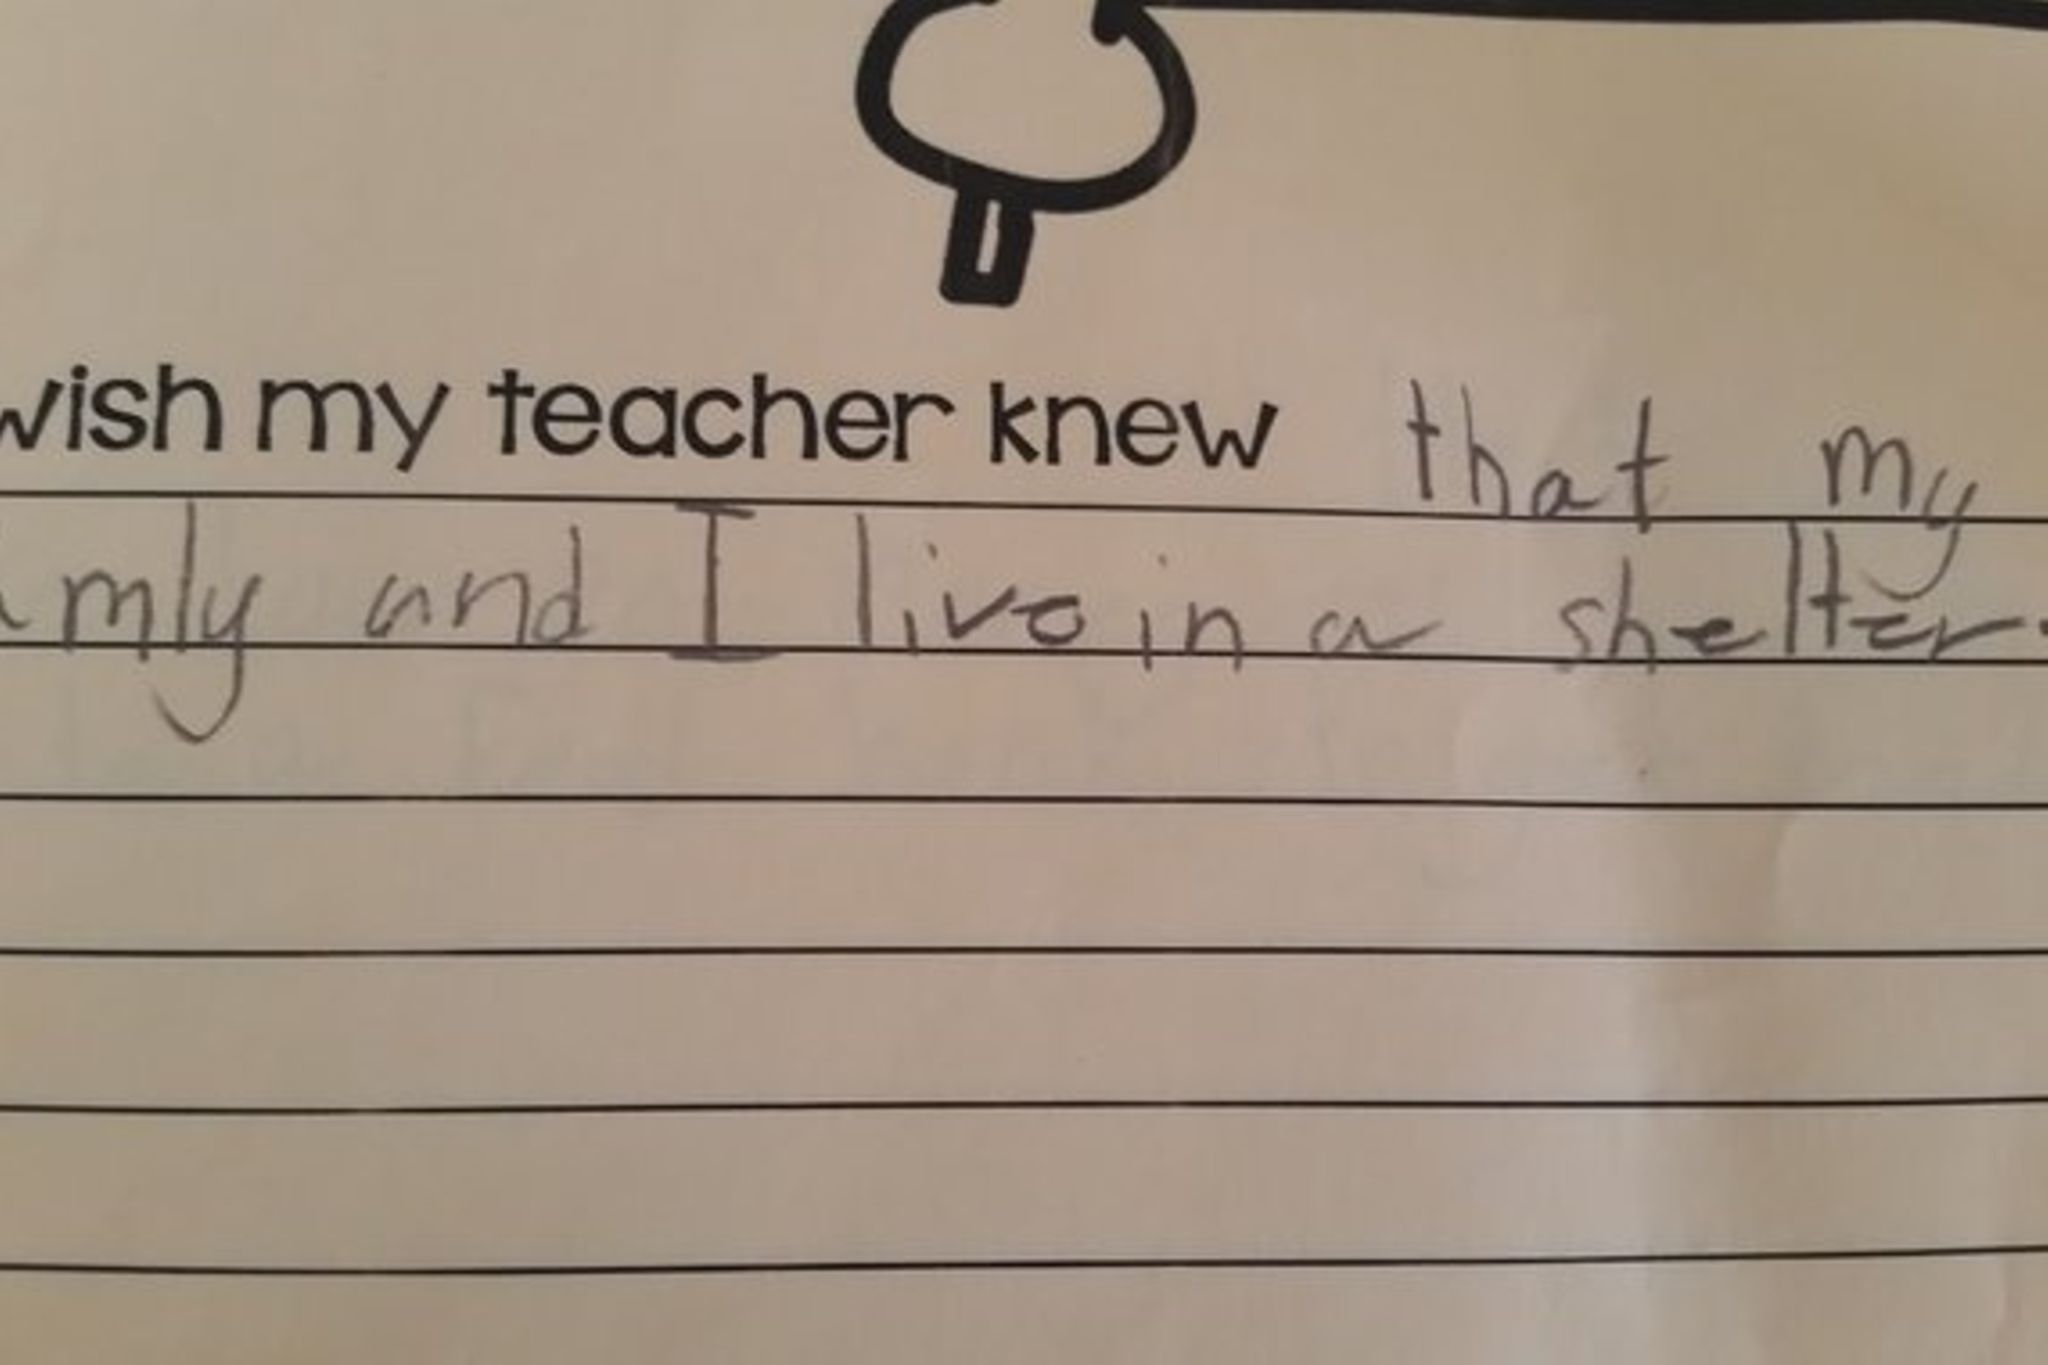 wish my teacher knew that my
amly and I live in a shelter.